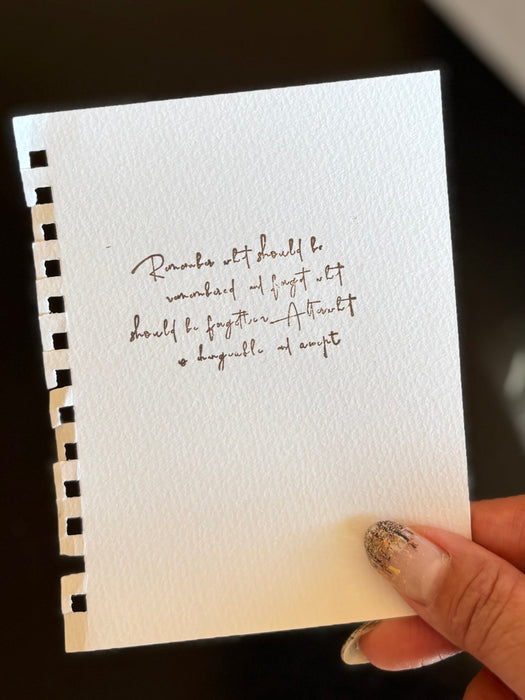 Remember what should be
remembered and forget what
should be forgotten. Alter what
is changeable and accept